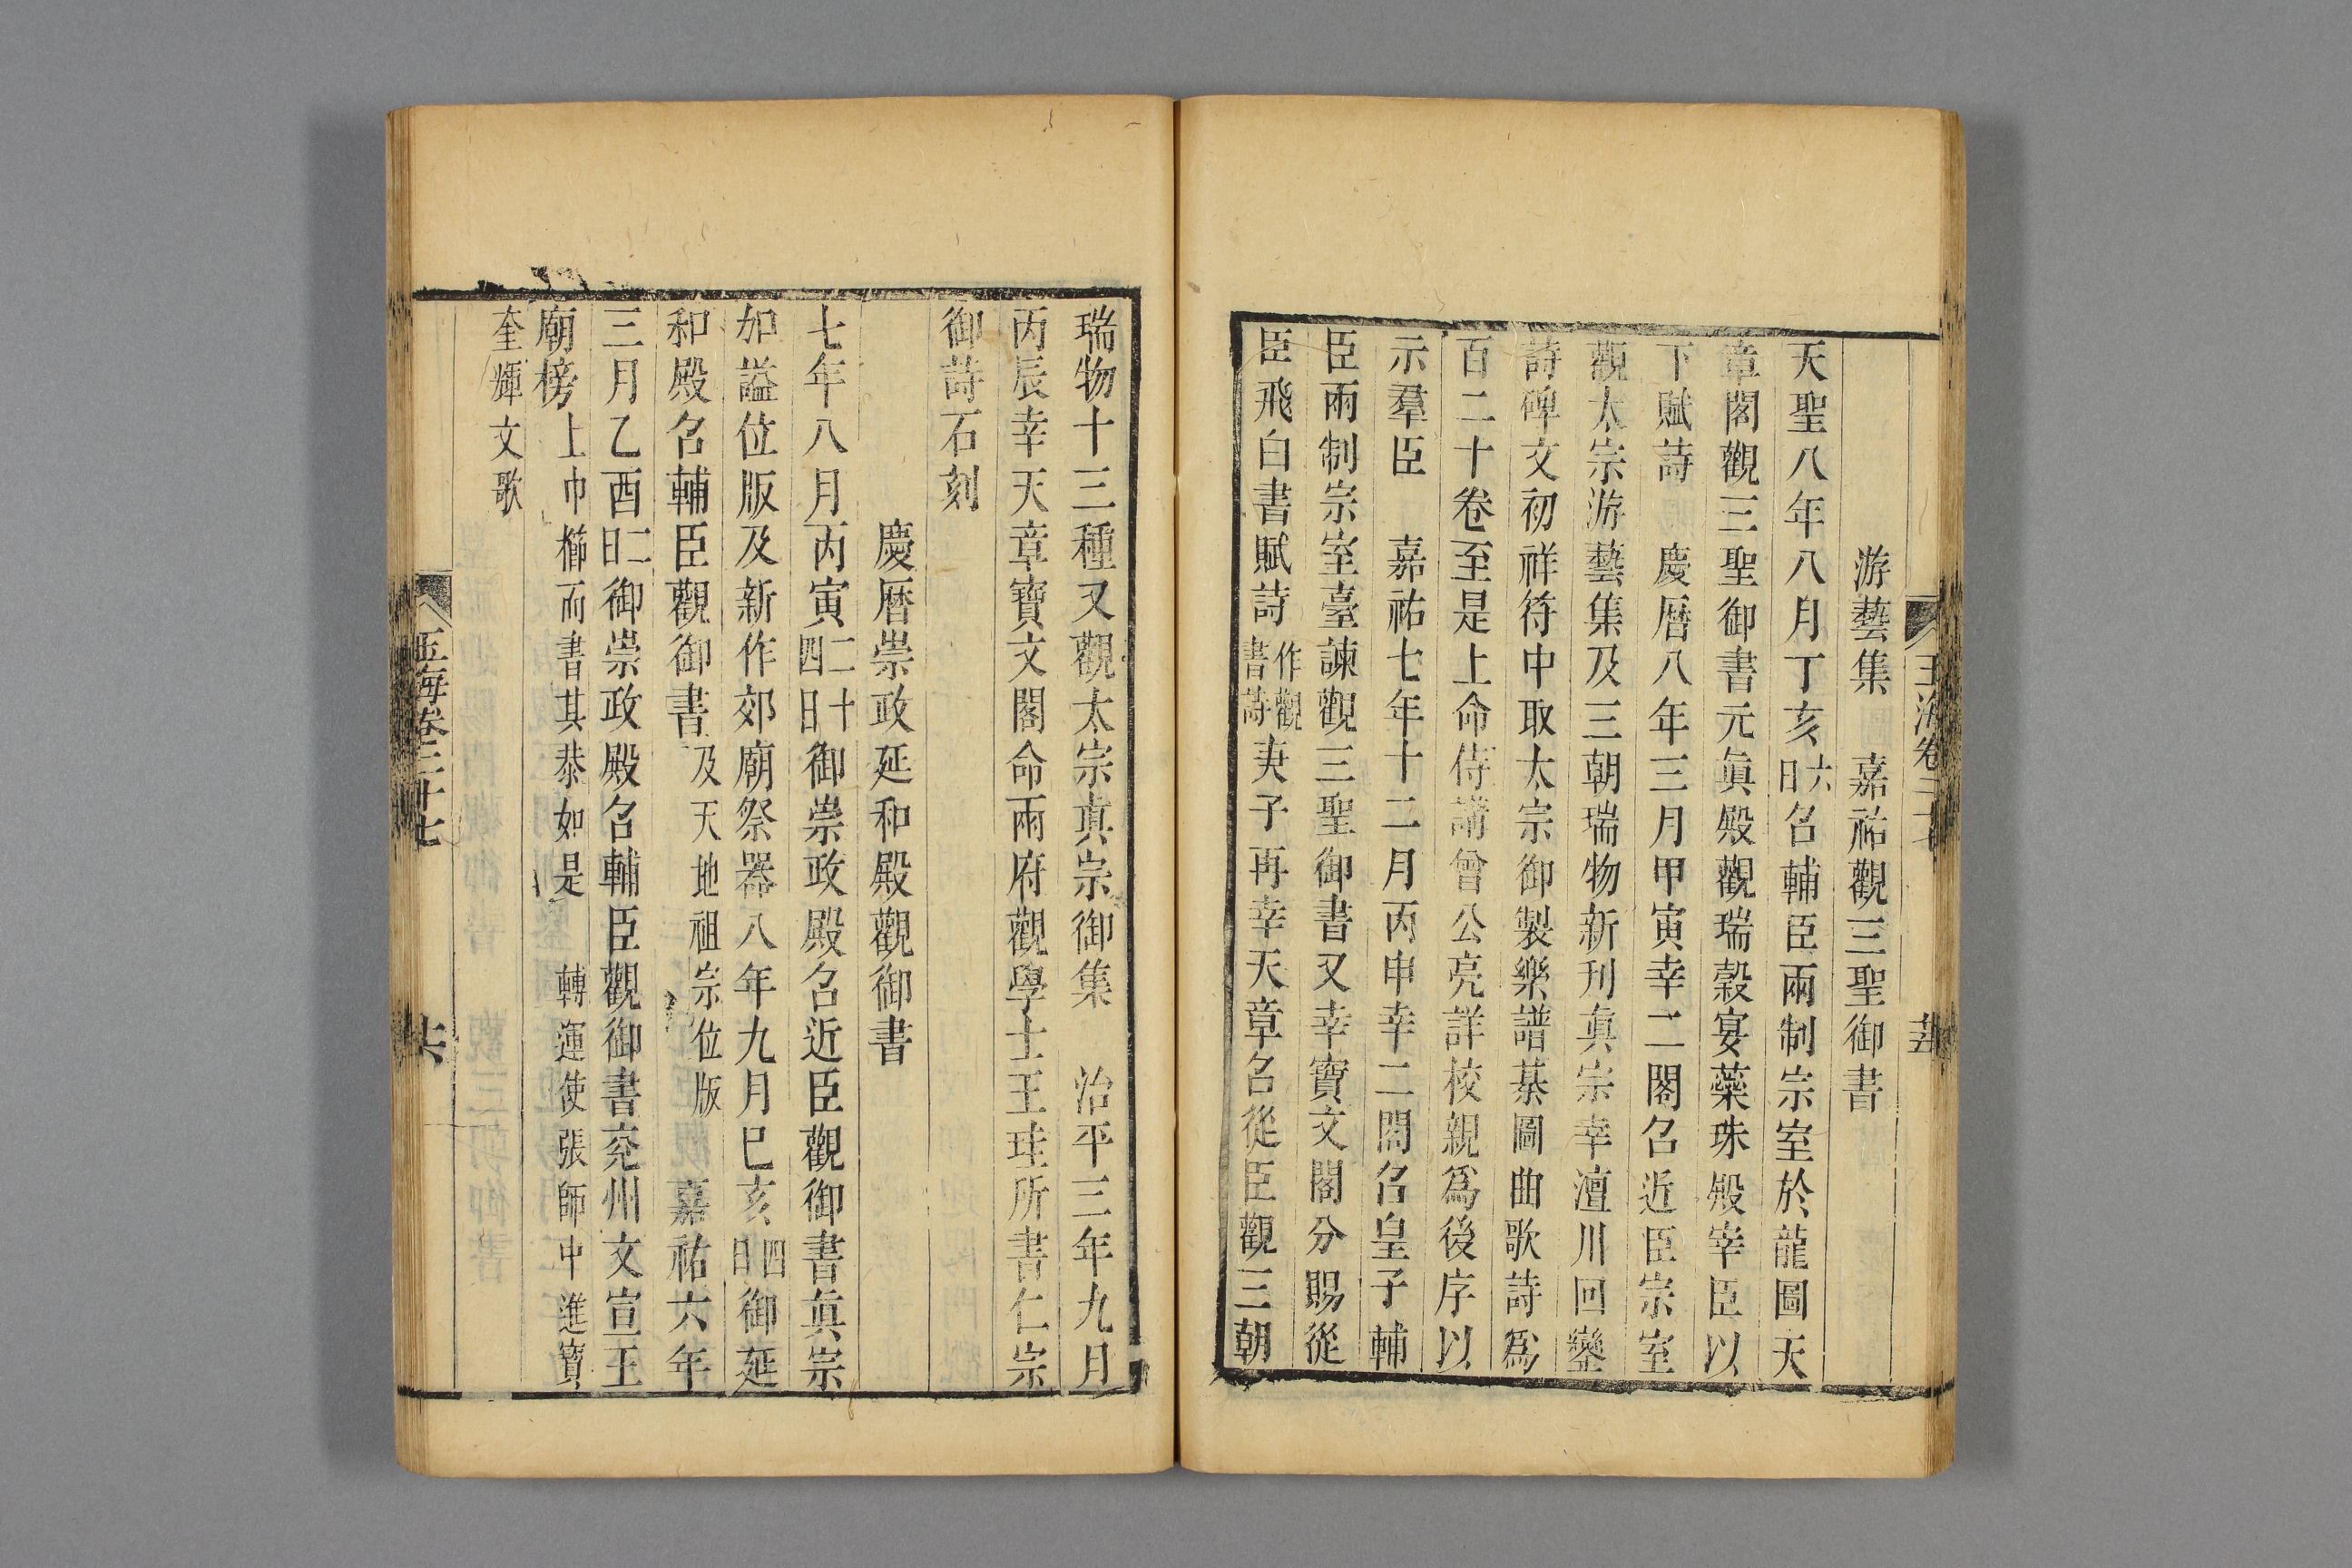 玉海卷二十七
游藝集　嘉祐觀三聖御書
天聖八年八月丁亥六日召輔臣兩制宗室於龍圖天
章閣觀三聖御書元眞殿觀瑞穀宴蘂珠殿宰臣以
下賦詩　慶曆八年三月甲寅幸二閣召近臣宗室
觀太宗游藝集及三朝瑞物新刊眞宗幸澶川回鑾
詩碑文初祥符中取太宗御製樂譜棊圖曲歌詩爲
百二十卷至是上命侍講曾公亮詳校親爲後序以
示羣臣　嘉祐七年十二月丙申幸二閣召皇子輔
臣兩制宗室臺諫觀三聖御書又幸寶文閣分賜從
臣飛白書賦詩作觀書詩庚子再幸天章召從臣觀三朝
瑞物十三種又觀太宗眞宗御集　治平三年九月
丙辰幸天章寶文閣命兩府觀學士王珪所書仁宗
御詩石刻
慶曆崇政延和殿觀御書
七年八月丙寅二十四日御崇政殿召近臣觀御書眞宗
加謚位版及新作郊廟祭器八年九月巳亥四日御延
和殿召輔臣觀御書及天地祖宗位版　嘉祐六年
三月乙酉二日御崇政殿召輔臣觀御書兖州文宣王
廟榜上巾櫛而書其恭如是　轉運使張師中進寶
奎輝文歌
玉海卷二十七